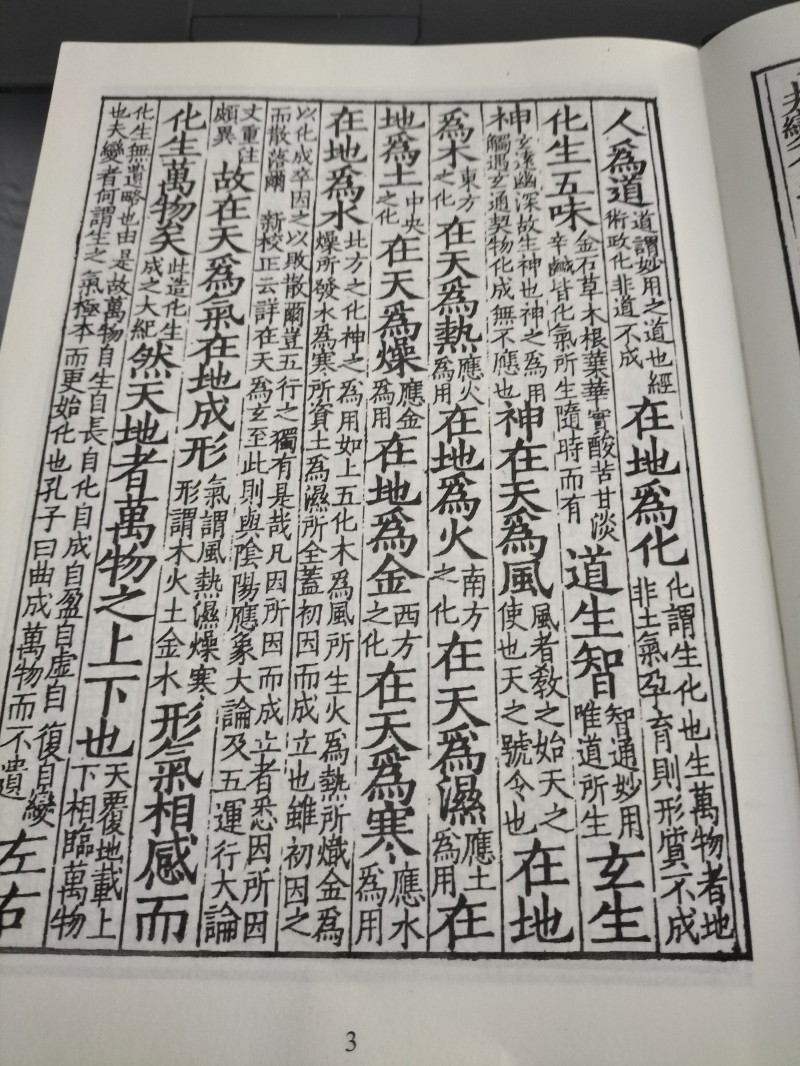 人爲道道謂妙用之道也經術政化非道不成在地爲化化謂生化也生萬物者地非土氣孕育則形質不成
化生五味金石草木根葉華實酸苦甘淡辛鹹皆化氣所生隨時而有道生智智通妙用唯道所生玄生
神玄遠幽深故生神也神之爲用觸遇玄通契物化成無不應也神在天爲風風者教之始天之使也天之號令也在地
爲木東方之化在天爲熱應火爲用在地爲火南方之化在天爲濕應土爲用在
地爲土中央之化在天爲燥應金爲用在地爲金西方之化在天爲寒應水爲用
在地爲水北方之化神之爲用如上五化木爲風所生火爲熱所熾金爲燥所發水爲寒所資土爲濕所全蓋初因而成立也雖初因之
以化成卒因之以敗散爾豈五行之獨有是哉凡因所因而成立者悉因所因而散落爾 新校正云詳在天爲玄至此則與陰陽應象大論及五運行大論
文重注頗異故在天爲氣在地成形氣謂風熱濕燥寒形謂木火土金水形氣相感而
化生萬物矣此造化生成之大紀然天地者萬物之上下也天覆地載上下相臨萬物
化生無遺略也由是故萬物自生自長自化自成自盈自虛自復自變也夫變者何謂生之氣極本而更始化也孔子曰曲成萬物而不遺左右
3